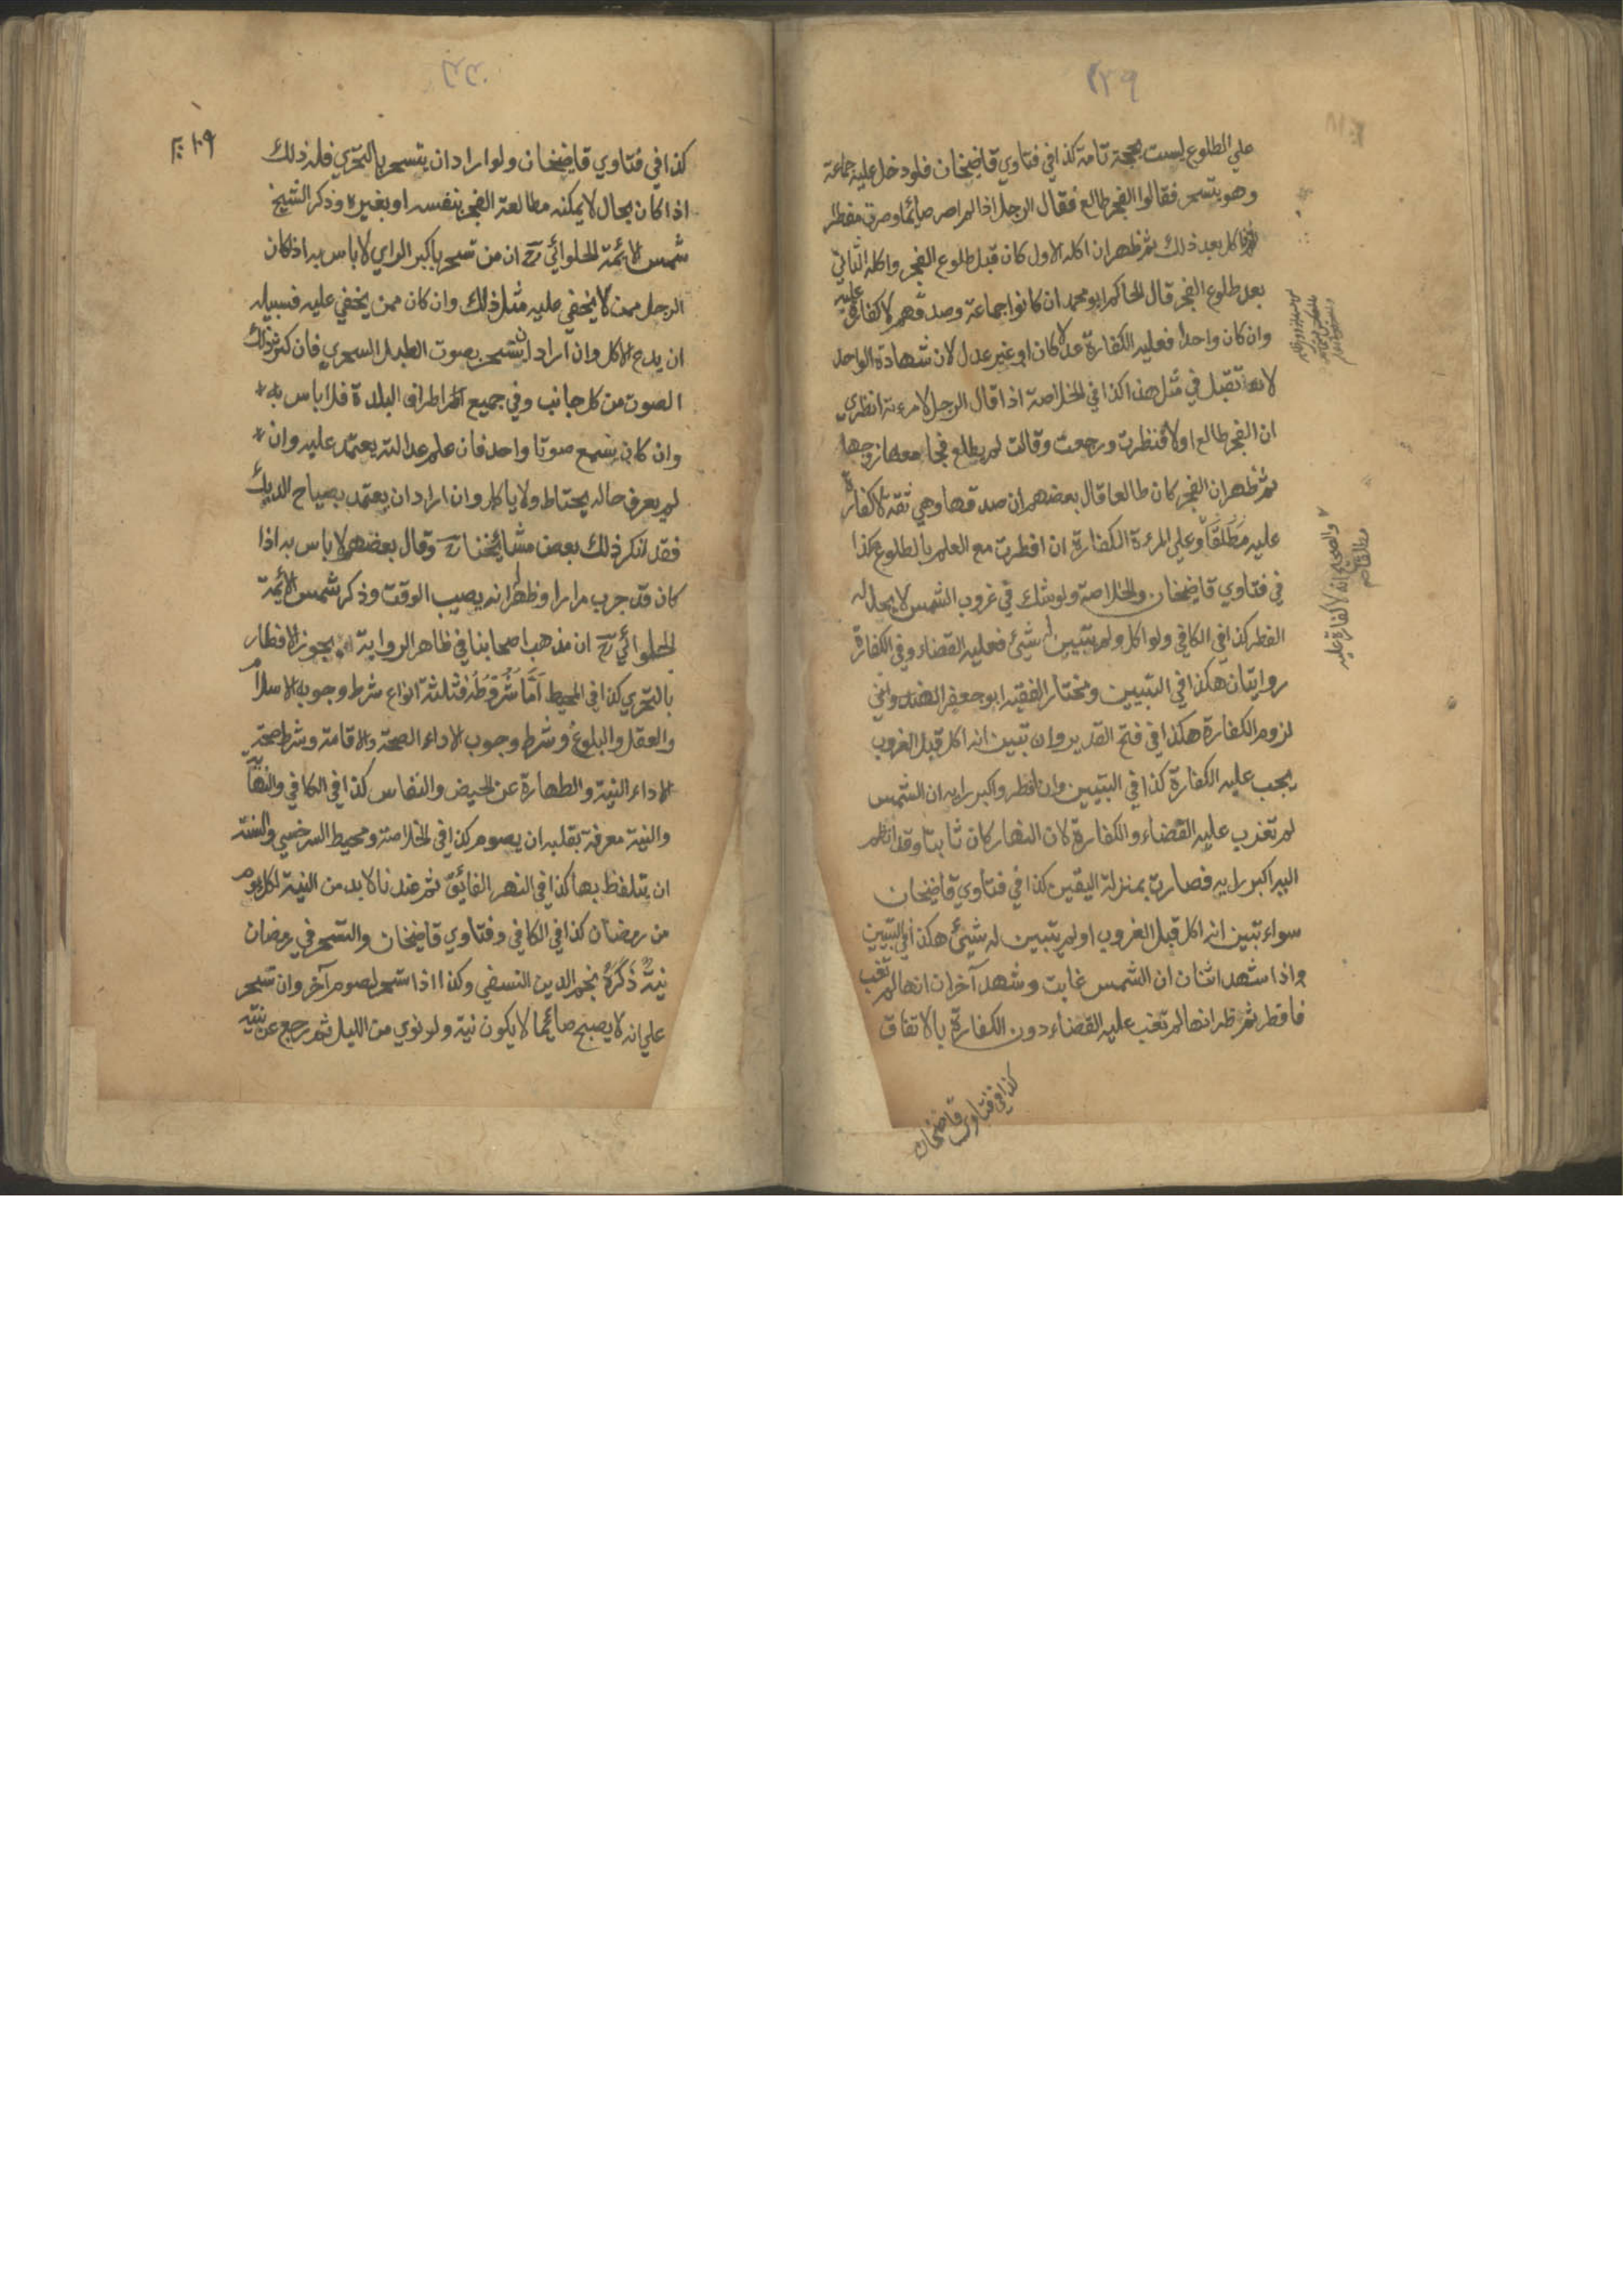 ٢٢٩
علي الطلوع ليست بحجة تامة كذا في فتاوي قاضيخان فلو دخل عليه جماعة
وهو يتسحر فقالوا الفجر طالع فقال الرجل اذا لم اصر صايما وصرت مفطرا
فاكل بعد ذلك ثم ظهر ان اكله الاول كان قبل طلوع الفجر واكله الثاني
بعد طلوع الفجر قال الحاكم ابو محمد ان كانوا جماعة وصدقهم لا كفارة عليه
وان كان واحدا فعليه الكفارة عدلا كان او غير عدل لان شهادة الواحد
لا تقبل في مثل هذا كذا في الخلاصة اذا قال الرجل لامرءته انظري
ان الفجر طالع اولا فنظرت ورجعت وقالت لم يطلع فجامعها زوجها
ثم ظهر ان الفجر كان طالعا قال بعضهم ان صدقها وهي ثقة لا كفارة
عليه مطلقا وعلي المرءة الكفارة ان افطرت مع العلم بالطلوع هكذا
في فتاوي قاضيخان والخلاصة ولو شك في غروب الشمس لا يحل له
الفطر كذا في الكافي ولو اكل ولم يتبين له شيئ فعليه القضاء وفي الكفارة
روايتان هكذا في التبيين ومختار الفقيه ابو جعفر الهندواني
لزوم الكفارة هكذا في فتح القدير وان تبين انه اكل قبل الغروب
يجب عليه الكفارة كذا في التبيين وان افطر واكبر رايه ان الشمس
لم تغرب عليه القضاء والكفارة لان النهار كان ثابتا وقد انظم
اليه اكبر رايه فصارت بمنزلة اليقين كذا في فتاوي قاضيخان
سواء تبين انه اكل قبل الغروب او لم يتبين له شيئ هكذا في التبيين
واذا شهد اثنان ان الشمس غابت وشهد آخران انها لم تغب
فافطر ثم ظهر انها لم تغب عليه القضاء دون الكفارة بالاتفاق
كذا في فتاوي قاضيخان
والصحيح انه لا كفارة عليه
كذا في فتاوي قاضيخان ولو اراد ان يتسحر بالتحري فله ذلك
اذا كان بحال لا يمكنه مطالعة الفجر بنفسه او بغيره وذكر الشيخ
شمس الائمة الحلوائي رح ان من تسحر باكبر الراي لا باس به اذا كان
الرجل ممن لا يخفي عليه مثل ذلك وان كان ممن يخفي عليه فسبيله
ان يدع الاكل وان اراد ان يتسحر بصوت الطبل السحري فان كثر ذلك
الصوت من كل جانب وفي جميع اطراف البلدة فلا باس به
وان كان يسمع صوتا واحد فان علم عدالته يعتمد عليه وان
لم يعرف حاله يحتاط ولا ياكل وان اراد ان يعتمد بصياح الديك
فقد انكر ذلك بعض مشايخنا رح وقال بعضهم لا باس به اذا
كان قد جرب مرارا وظهر انه يصيب الوقت وذكر شمس الائمة
الحلوائي رح ان مذهب اصحابنا في ظاهر الرواية انه يجوز الافطار
بالتحري كذا في المحيط اما شروطه فثلثة انواع شرط وجوبه الاسلام
والعقل والبلوغ وشرط وجوب الاداء الصحة والاقامة وشرط صحة
الاداء النية والطهارة عن الحيض والنفاس كذا في الكافي والنهاية
والنية معرفة بقلبه ان يصوم كذا في الخلاصة ومحيط السرخسي والسنة
ان يتلفظ بها كذا في النهر الفائق ثم عندنا لا بد من النية لكل يوم
من رمضان كذا في الكافي وفتاوي قاضيخان والتسحر في رمضان
نية ذكره نجم الدين النسفي وكذا اذا تسحر لصوم آخر وان تسحر
علي انه لا يصبح صايما لا يكون نية ولو نوي من الليل ثم رجع عن نيته